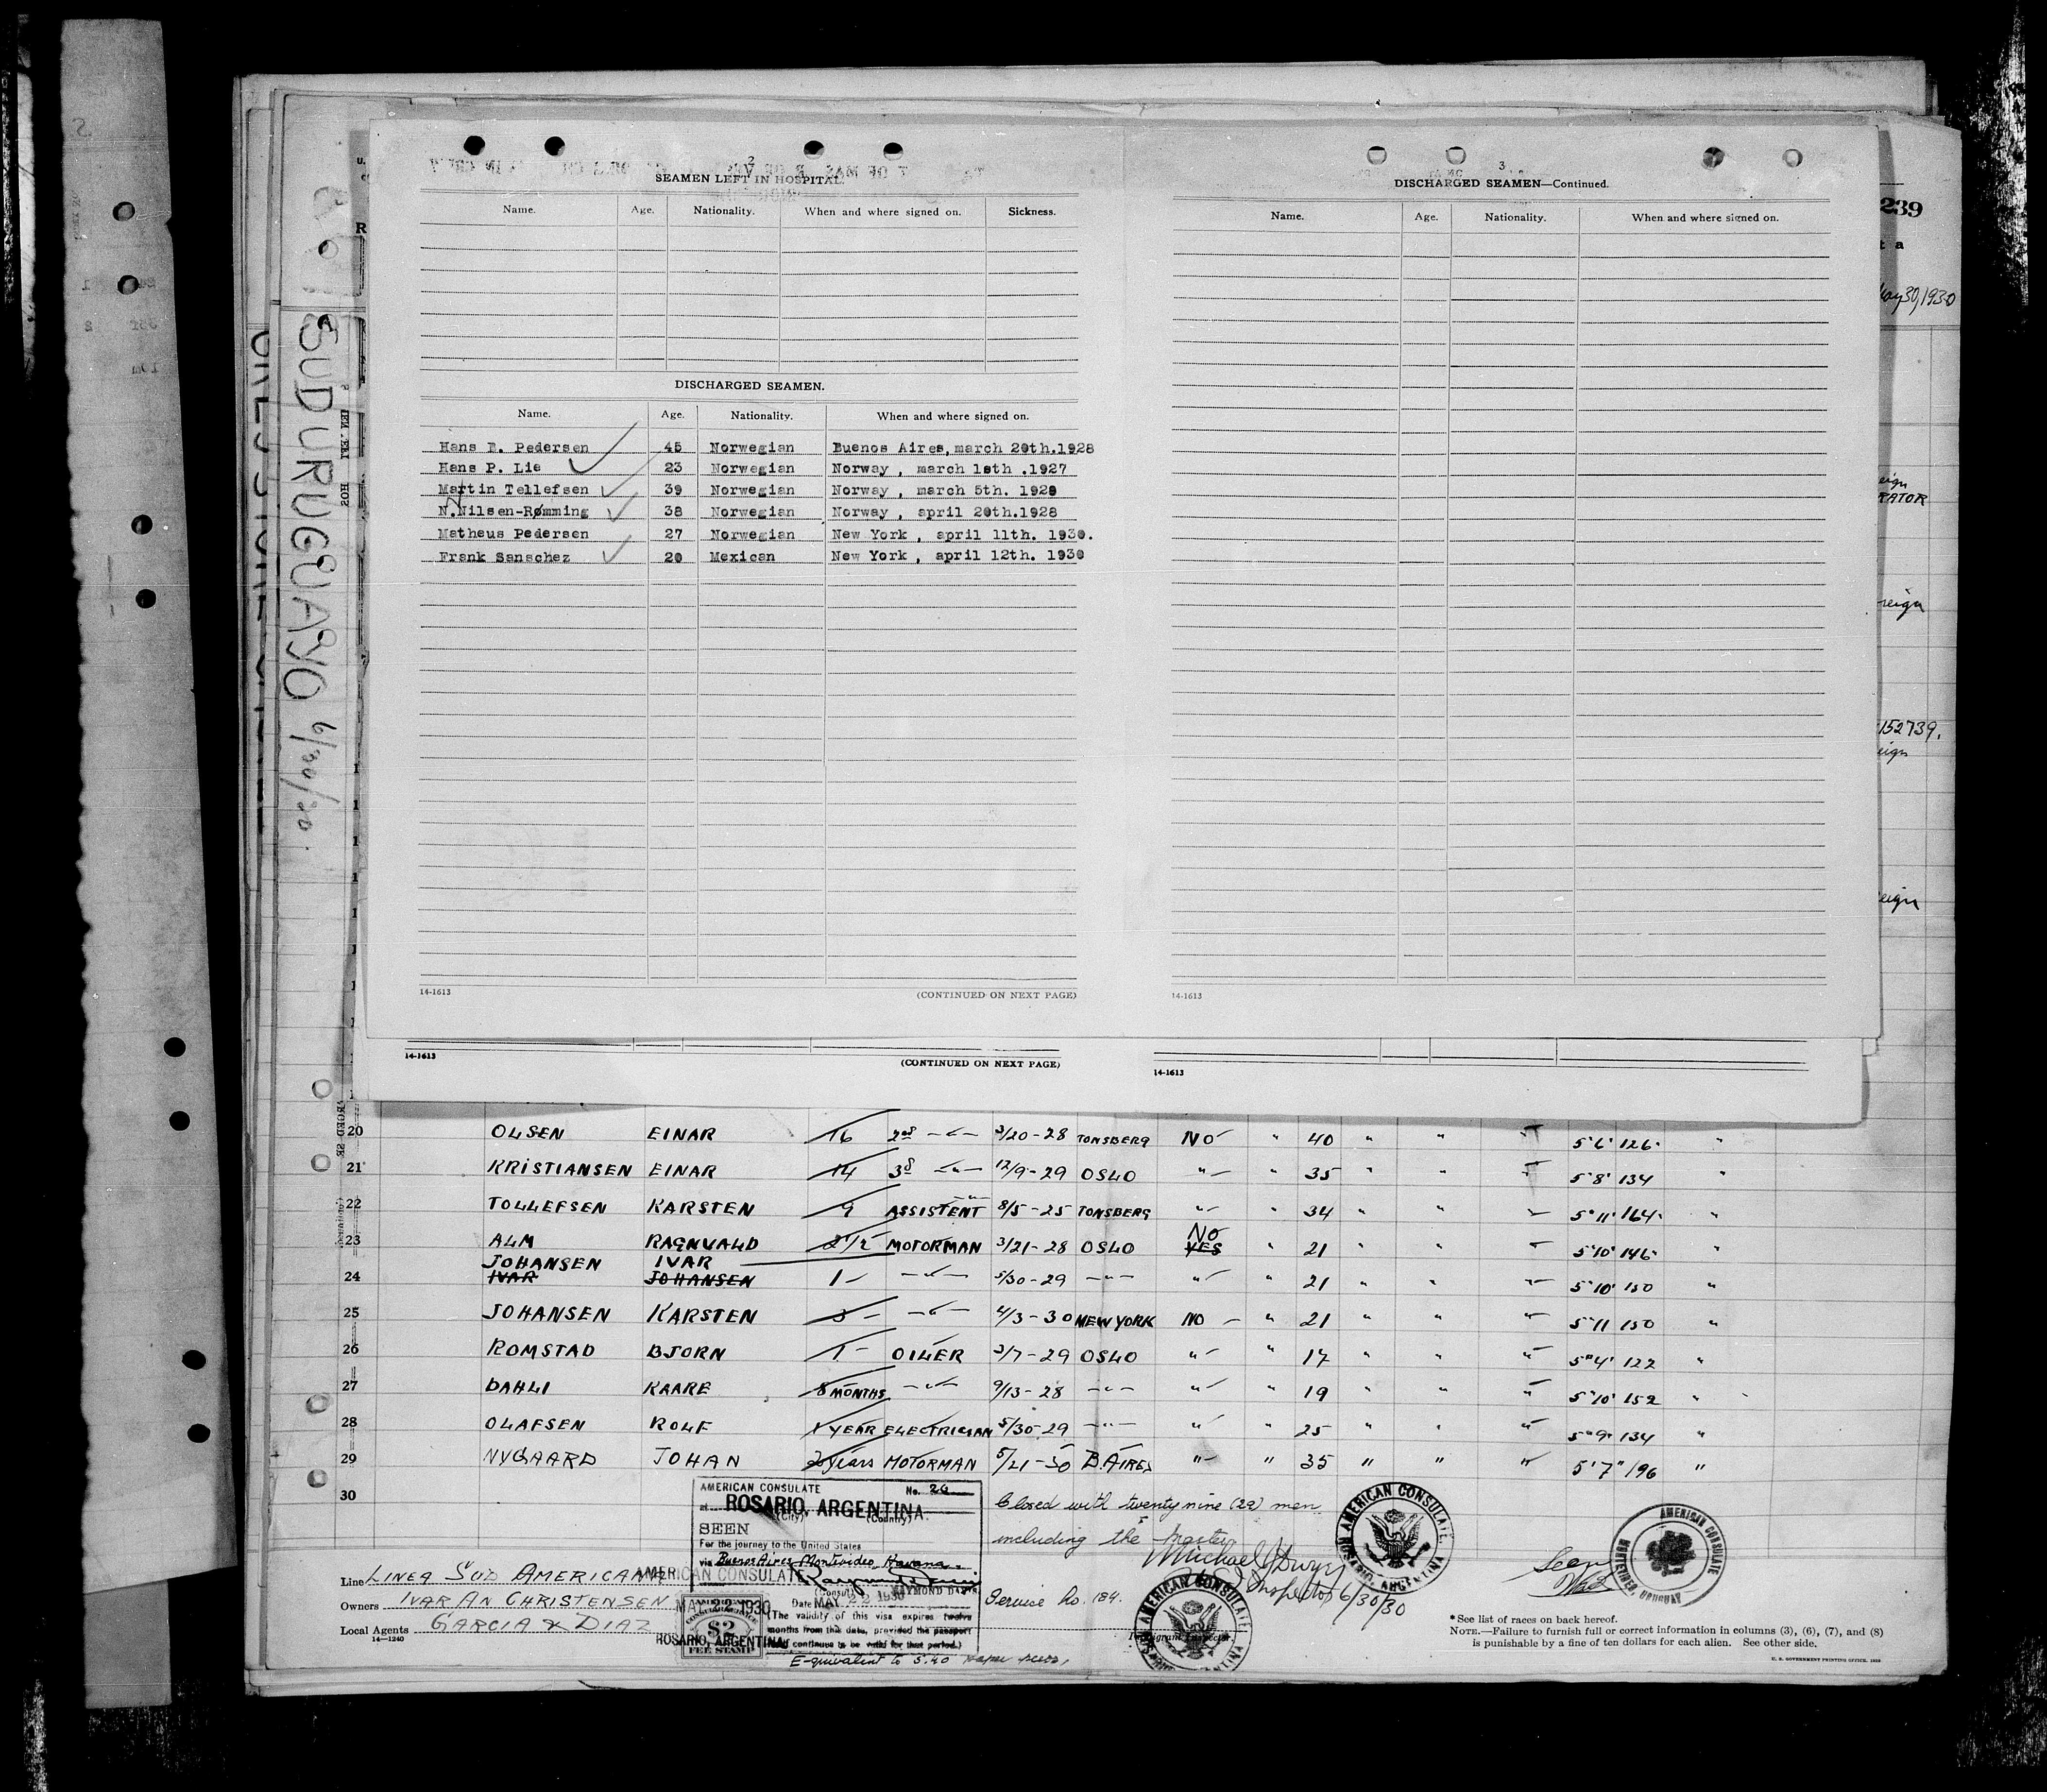 SUD URUGUAYO 6/30/30.
239
t a
May 30, 1930
2
SEAMEN LEFT IN HOSPITAL.
Name. Age. Nationality. When and where signed on. Sickness.
DISCHARGED SEAMEN.
Name. Age. Nationality. When and where signed on.
Hans E. Pedersen 45 Norwegian Buenos Aires, march 20th.1928
Hans P. Lie 23 Norwegian Norway, march 18th .1927
Martin Tellefsen 39 Norwegian Norway, march 5th. 1928
N.Nilsen-Rømming 38 Norwegian Norway, april 20th.1928
Matheus Pedersen 27 Norwegian New York, april 11th. 1930.
Frank Sanschez 20 Mexican New York, april 12th. 1930
14-1613 (CONTINUED ON NEXT PAGE)
3
DISCHARGED SEAMEN—Continued.
Name. Age. Nationality. When and where signed on.
14-1613
eign
RATOR
reign
152739.
eign
eign
14-1613 (CONTINUED ON NEXT PAGE)
14-1613
20 OLSEN EINAR 16 2nd —"— 3/20-28 TONSBERG NO " 40 " " " 5'6" 126 "
21 KRISTIANSEN EINAR 14 3d —"— 12/9-29 OSLO " " 35 " " " 5'8" 134
22 TOLLEFSEN KARSTEN 9 ASSISTENT —"— 8/5-25 TONSBERG " " 34 " " " 5'11" 164 "
23 ALM RAGNVALD 2 1/2 MOTORMAN 3/21-28 OSLO NO YES " 21 " " " 5'10" 146 "
JOHANSEN IVAR
24 IVAR JOHANSEN 1 —"— 5/30-29 —"— " " 21 " " " 5'10" 150 "
25 JOHANSEN KARSTEN 3 —"— 4/3-30 NEW YORK NO " 21 " " " 5'11 150 "
26 ROMSTAD BJORN 1 OILER 3/7-29 OSLO " " 17 " " " 5"4" 122 "
27 DAHLI KAARE 8 MONTHS —"— 9/13-28 —"— " " 19 " " " 5'10" 152 "
28 OLAFSEN ROLF 1 YEAR ELECTRICIAN 5/30-29 —"— " " 25 " " " 5"9" 134 "
29 NYGAARD JOHAN 2 years MOTORMAN 5/21-30 B.AIRES " " 35 " " " 5'7" 196 "
30
AMERICAN CONSULATE No. 26
at ROSARIO, ARGENTINA.
(City) (Country)
SEEN
For the journey to the United States
via Buenos Aires, Montevideo, Havana.
AMERICAN CONSULATE
(Consul) RAYMOND DAVIS
Date MAY 22 1930
(The validity of this visa expires twelve
months from this date, provided the passport
continues to be valid for that period.)
MAY 22 1930
AMERICAN CONSULAR SERVICE
$2
FEE STAMP
ROSARIO, ARGENTINA
Equivalent to 5.40 paper pesos,
Closed with twenty nine (29) men
including the Master
Michael J Dwyer
Inspector 6/30/30
Service No. 184.
Immigrant Inspector.
AMERICAN CONSULATE ROSARIO, ARGENTINA
AMERICAN CONSULATE ROSARIO, ARGENTINA
AMERICAN CONSULATE MONTEVIDEO, URUGUAY
Line LINEA SUD AMERICANA
Owners IVAR AN CHRISTENSEN
Local Agents GARCIA & DIAZ
14-1240
* See list of races on back hereof.
NOTE.—Failure to furnish full or correct information in columns (3), (6), (7), and (8)
is punishable by a fine of ten dollars for each alien. See other side.
U. S. GOVERNMENT PRINTING OFFICE, 1929